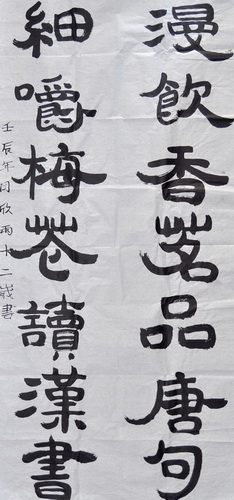 漫飲香茗品唐句
細嚼梅花讀漢書
壬辰年闫欣雨十二歲書